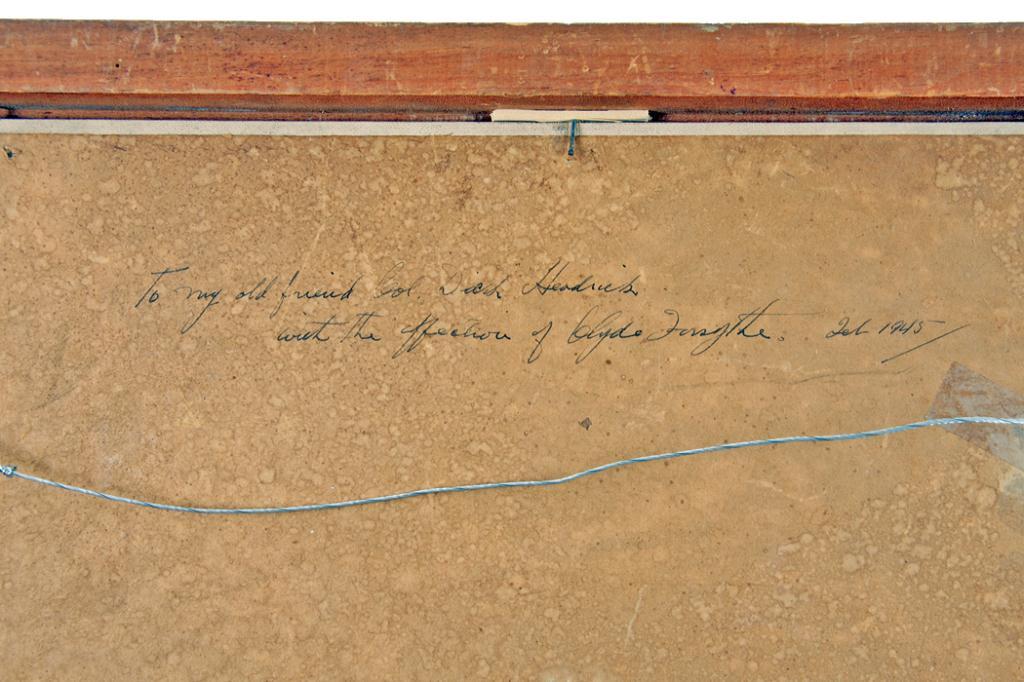 To my old friend Col. Dick Hendrick
with the affection of Clyde Forsythe. Feb 1945